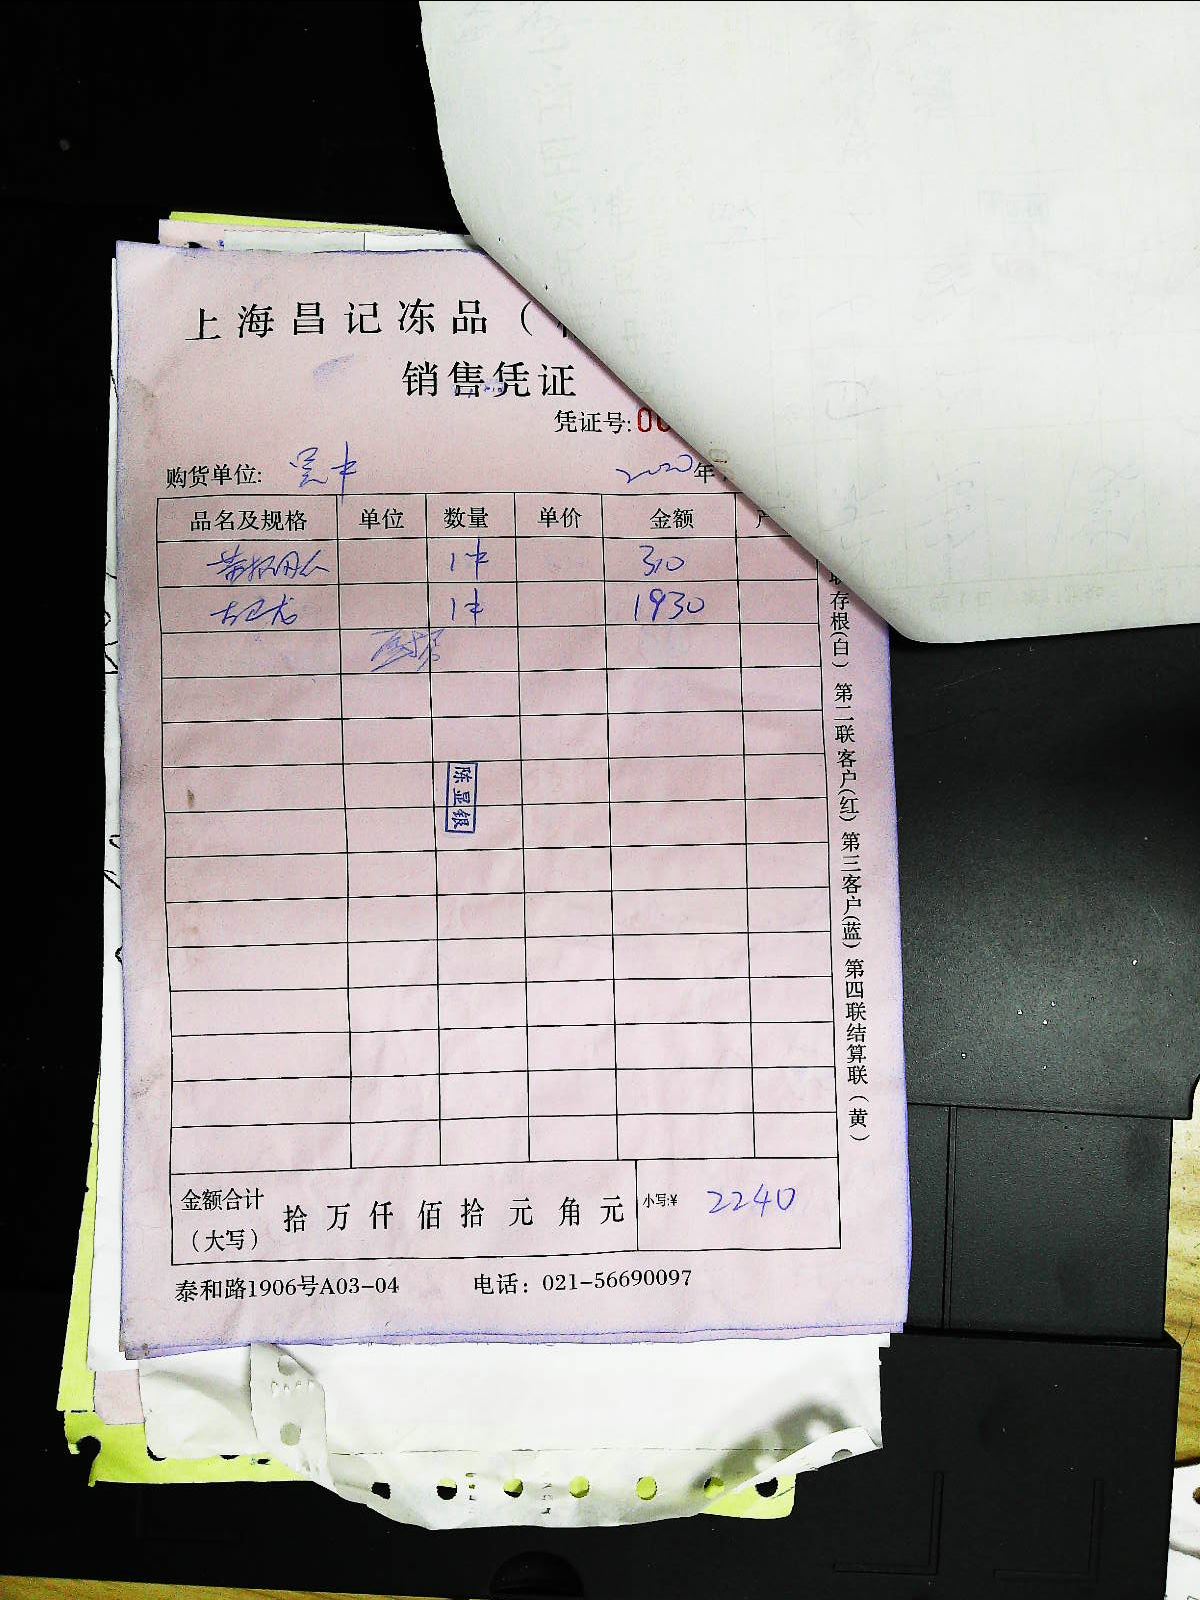 上海昌记冻品（
销售凭证
凭证号:00
购货单位: 吴中 2020年
品名及规格 单位 数量 单价 金额 产
1件 310
1件 1930
陈显银
金额合计（大写） 拾 万 仟 佰 拾 元 角 元 小写:¥ 2240
泰和路1906号A03-04 电话：021-56690097
联存根(白) 第二联客户(红) 第三客户(蓝) 第四联结算联(黄)